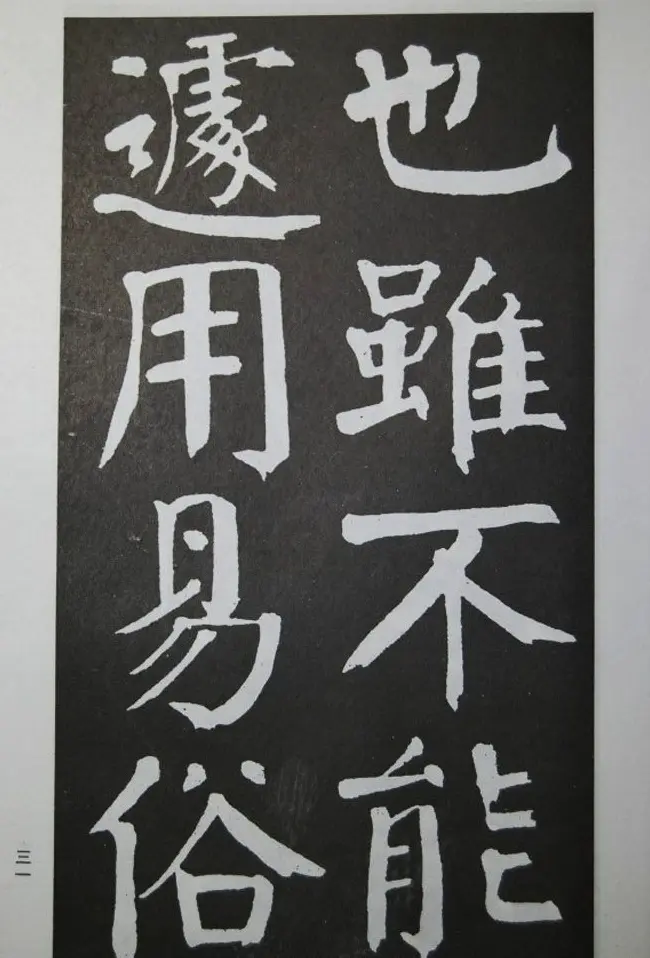 也雖不能
遽用易俗